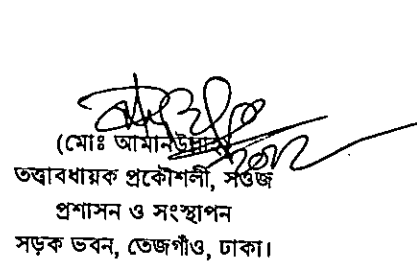 (মোঃ আমানউল্লাহ)
তত্ত্বাবধায়ক প্রকৌশলী, সওজ
প্রশাসন ও সংস্থাপন
সড়ক ভবন, তেজগাঁও, ঢাকা।